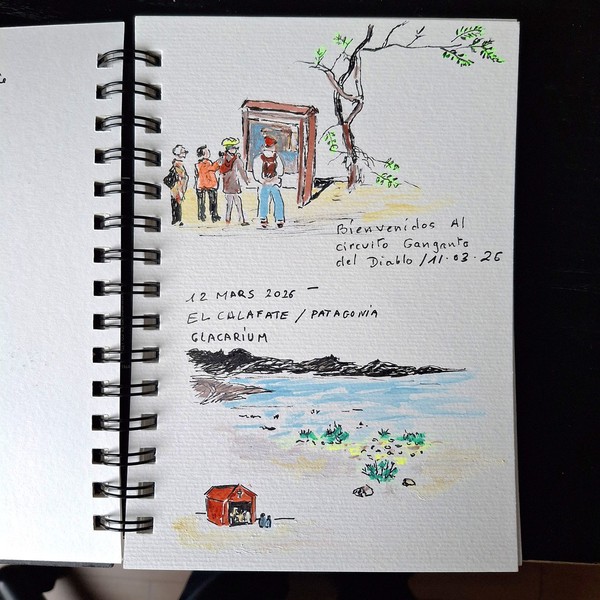 Bienvenidos Al
circuito Garganta
del Diablo / 11.03.26
12 MARS 2026 –
EL CALAFATE / PATAGONIA
GLACARIUM